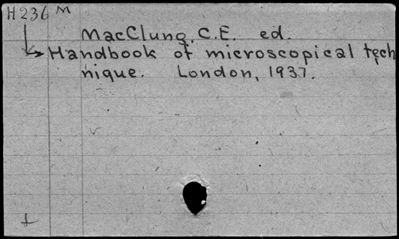 H236 M
MacClung, C.E. ed.
Handbook of microscopical tech
nique. London, 1937.